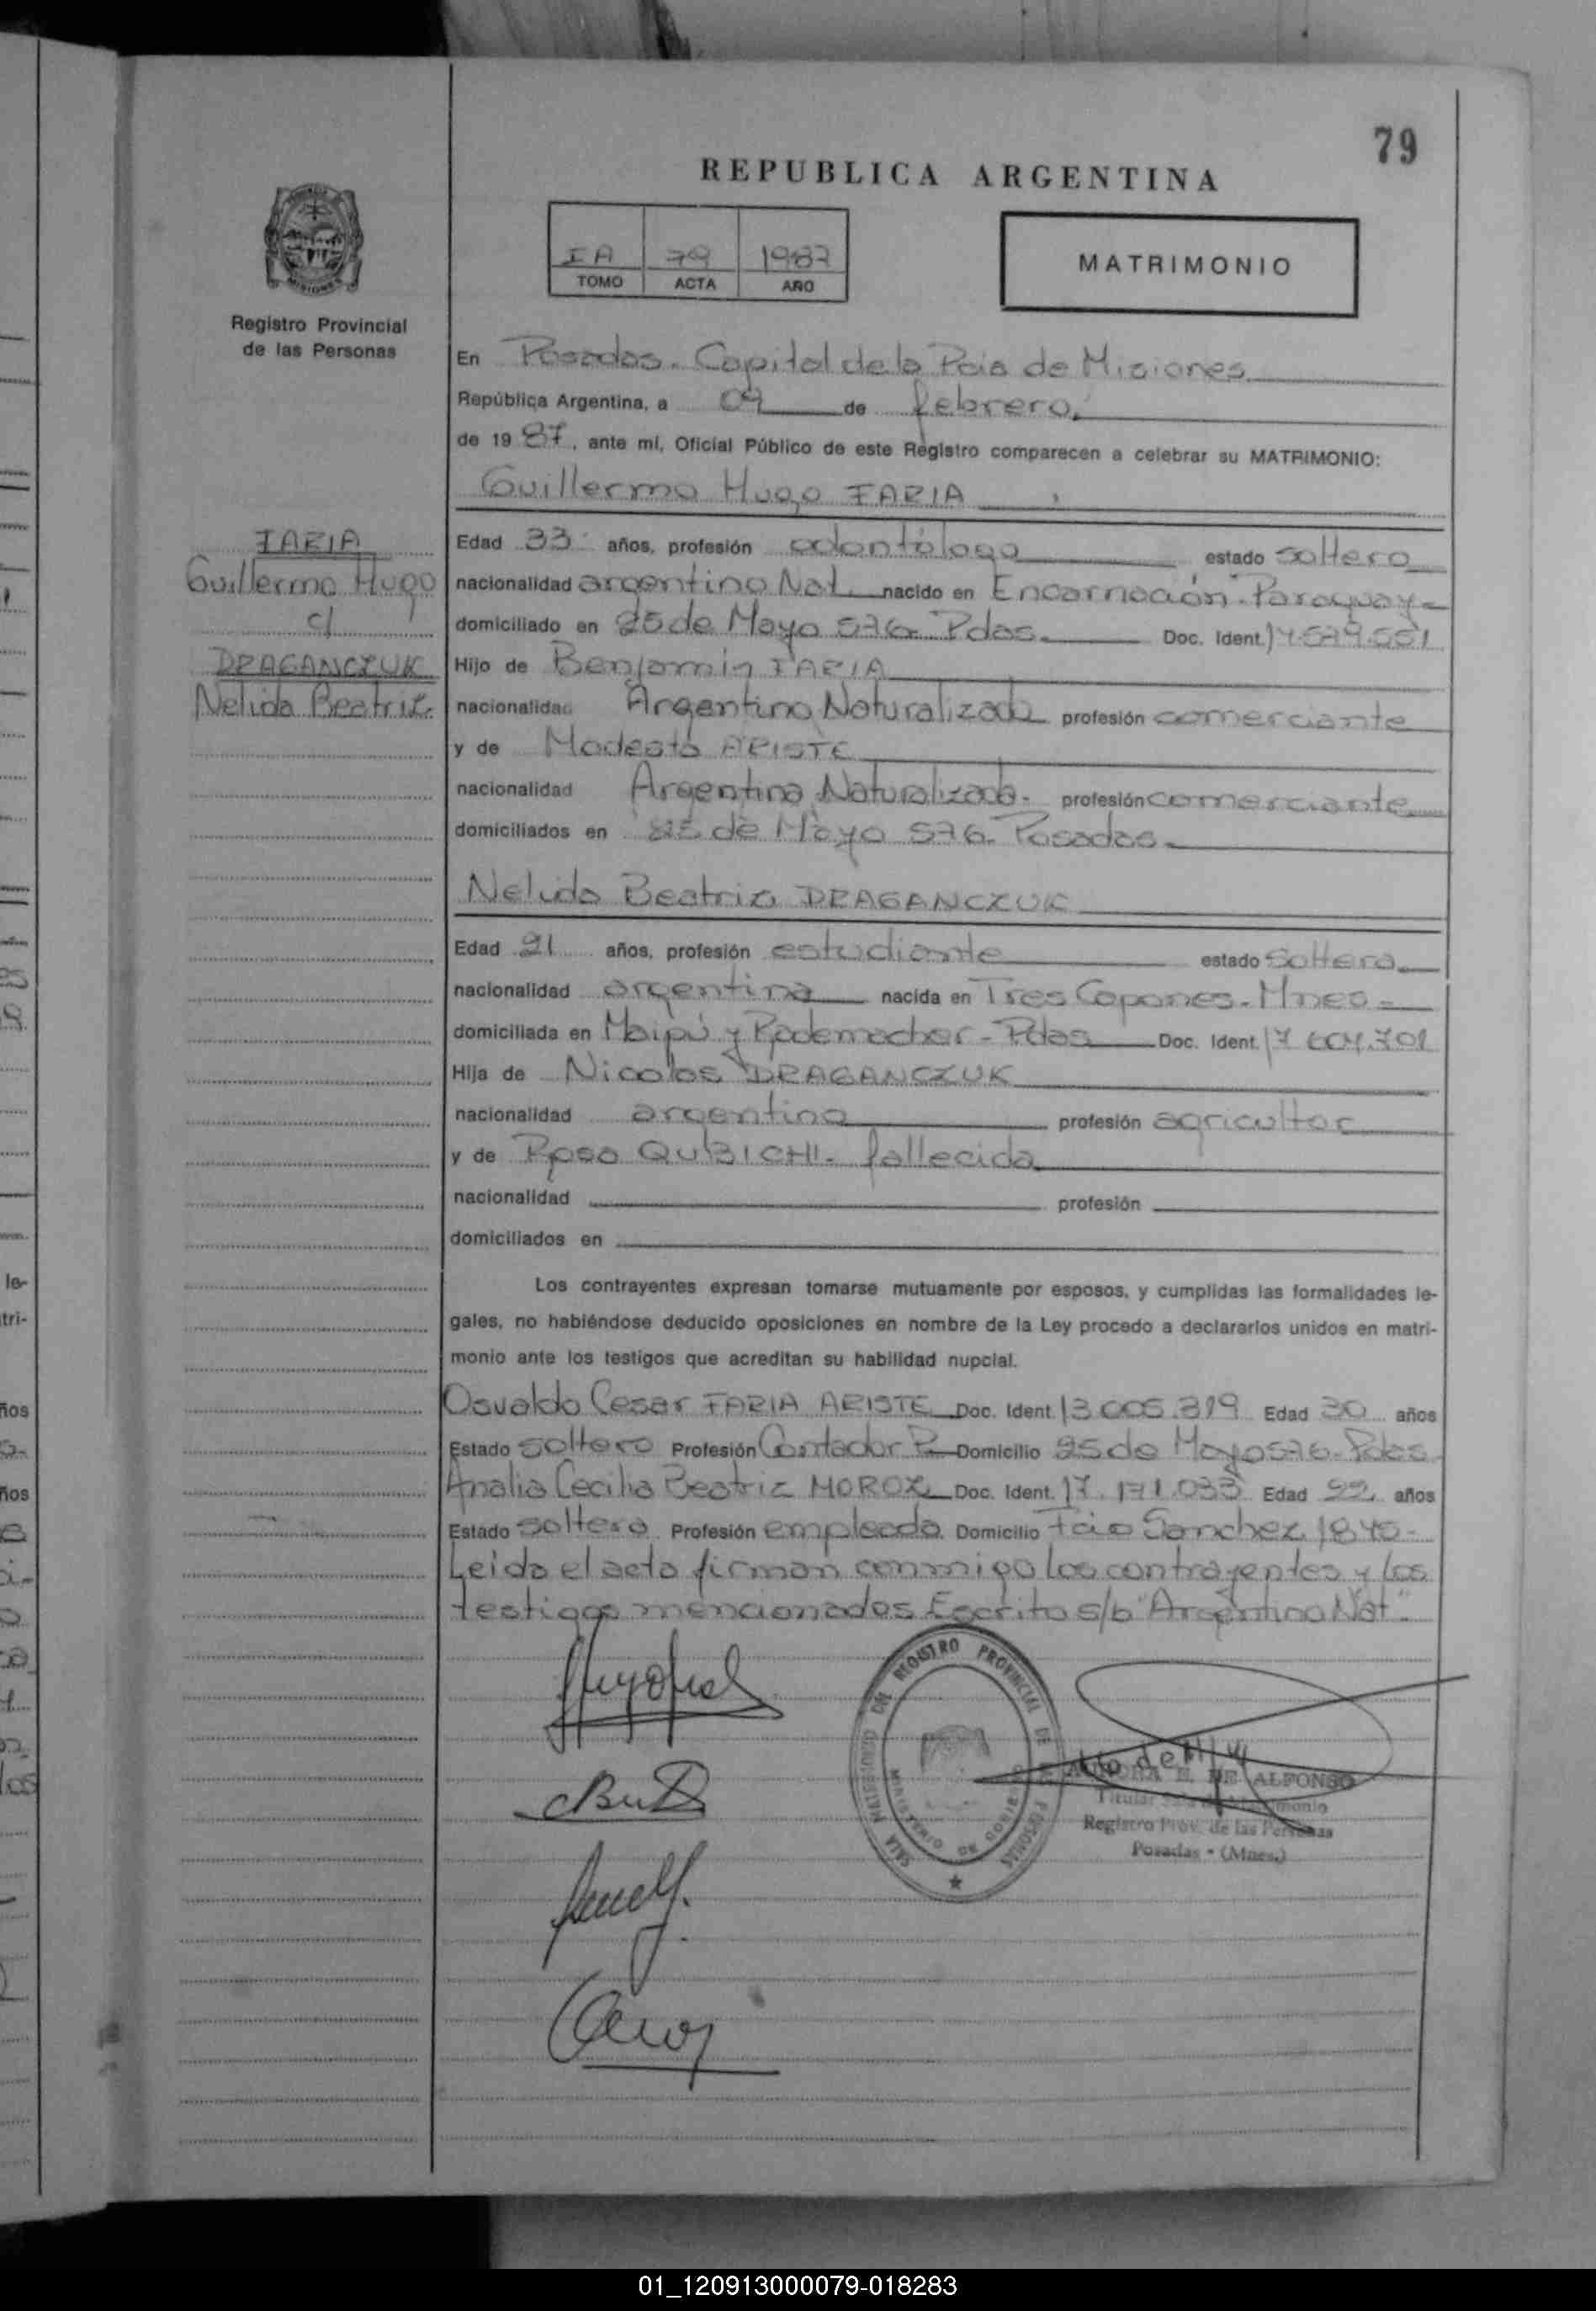 79
REPUBLICA ARGENTINA
IA 79 1987
TOMO ACTA AÑO
MATRIMONIO
MISIONES
Registro Provincial
de las Personas
En Posadas. Capital de la Pcia de Misiones
República Argentina, a 09 de febrero.
de 1987, ante mí, Oficial Público de este Registro comparecen a celebrar su MATRIMONIO:
Guillermo Hugo FARIA
FARIA
Guillermo Hugo
c/
DRAGANCZUK
Nelida Beatriz
Edad 33 años, profesión odontólogo estado soltero
nacionalidad argentino Nat. nacido en Encarnación-Paraguay-
domiciliado en 25 de Mayo 576- Pdas. Doc. Ident. 14.579.551
Hijo de Benjamín FARIA
nacionalidad Argentino Naturalizado profesión comerciante
y de Modesta ARISTE
nacionalidad Argentina Naturalizada- profesión comerciante
domiciliados en 25 de Mayo 576- Posadas.
Nelida Beatriz DRAGANCZUK
Edad 21 años, profesión estudiante estado soltera
nacionalidad argentina nacida en Tres Capones-Mnes-
domiciliada en Maipú y Rademacher-Pdas Doc. Ident. 17 604.701
Hija de Nicolas DRAGANCZUK
nacionalidad argentino profesión agricultor
y de Rosa QUBICHI- fallecida
nacionalidad profesión
domiciliados en
Los contrayentes expresan tomarse mutuamente por esposos, y cumplidas las formalidades le-
gales, no habiéndose deducido oposiciones en nombre de la Ley procedo a declararlos unidos en matri-
monio ante los testigos que acreditan su habilidad nupcial.
Osvaldo Cesar FARIA ARISTE Doc. Ident. 13.005.319 Edad 30 años
Estado soltero Profesión Contador P. Domicilio 25 de Mayo 576-Pdas
Analia Cecilia Beatriz MOROZ Doc. Ident. 17.171.033 Edad 22 años
Estado soltera Profesión empleada Domicilio Fcio Sanchez 1845-
Leida el acta firman conmigo los contrayentes y los
testigos mencionados Escrito s/b "Argentino Nat".
SALA MATRIMONIO DEL REGISTRO PROVINCIAL DE LAS PERSONAS
MINISTERIO DE GOBIERNO
E. DE ALFONSO
Titular Sala de Matrimonio
Registro Prov. de las Personas
Posadas - (Mnes.)
01_120913000079-018283